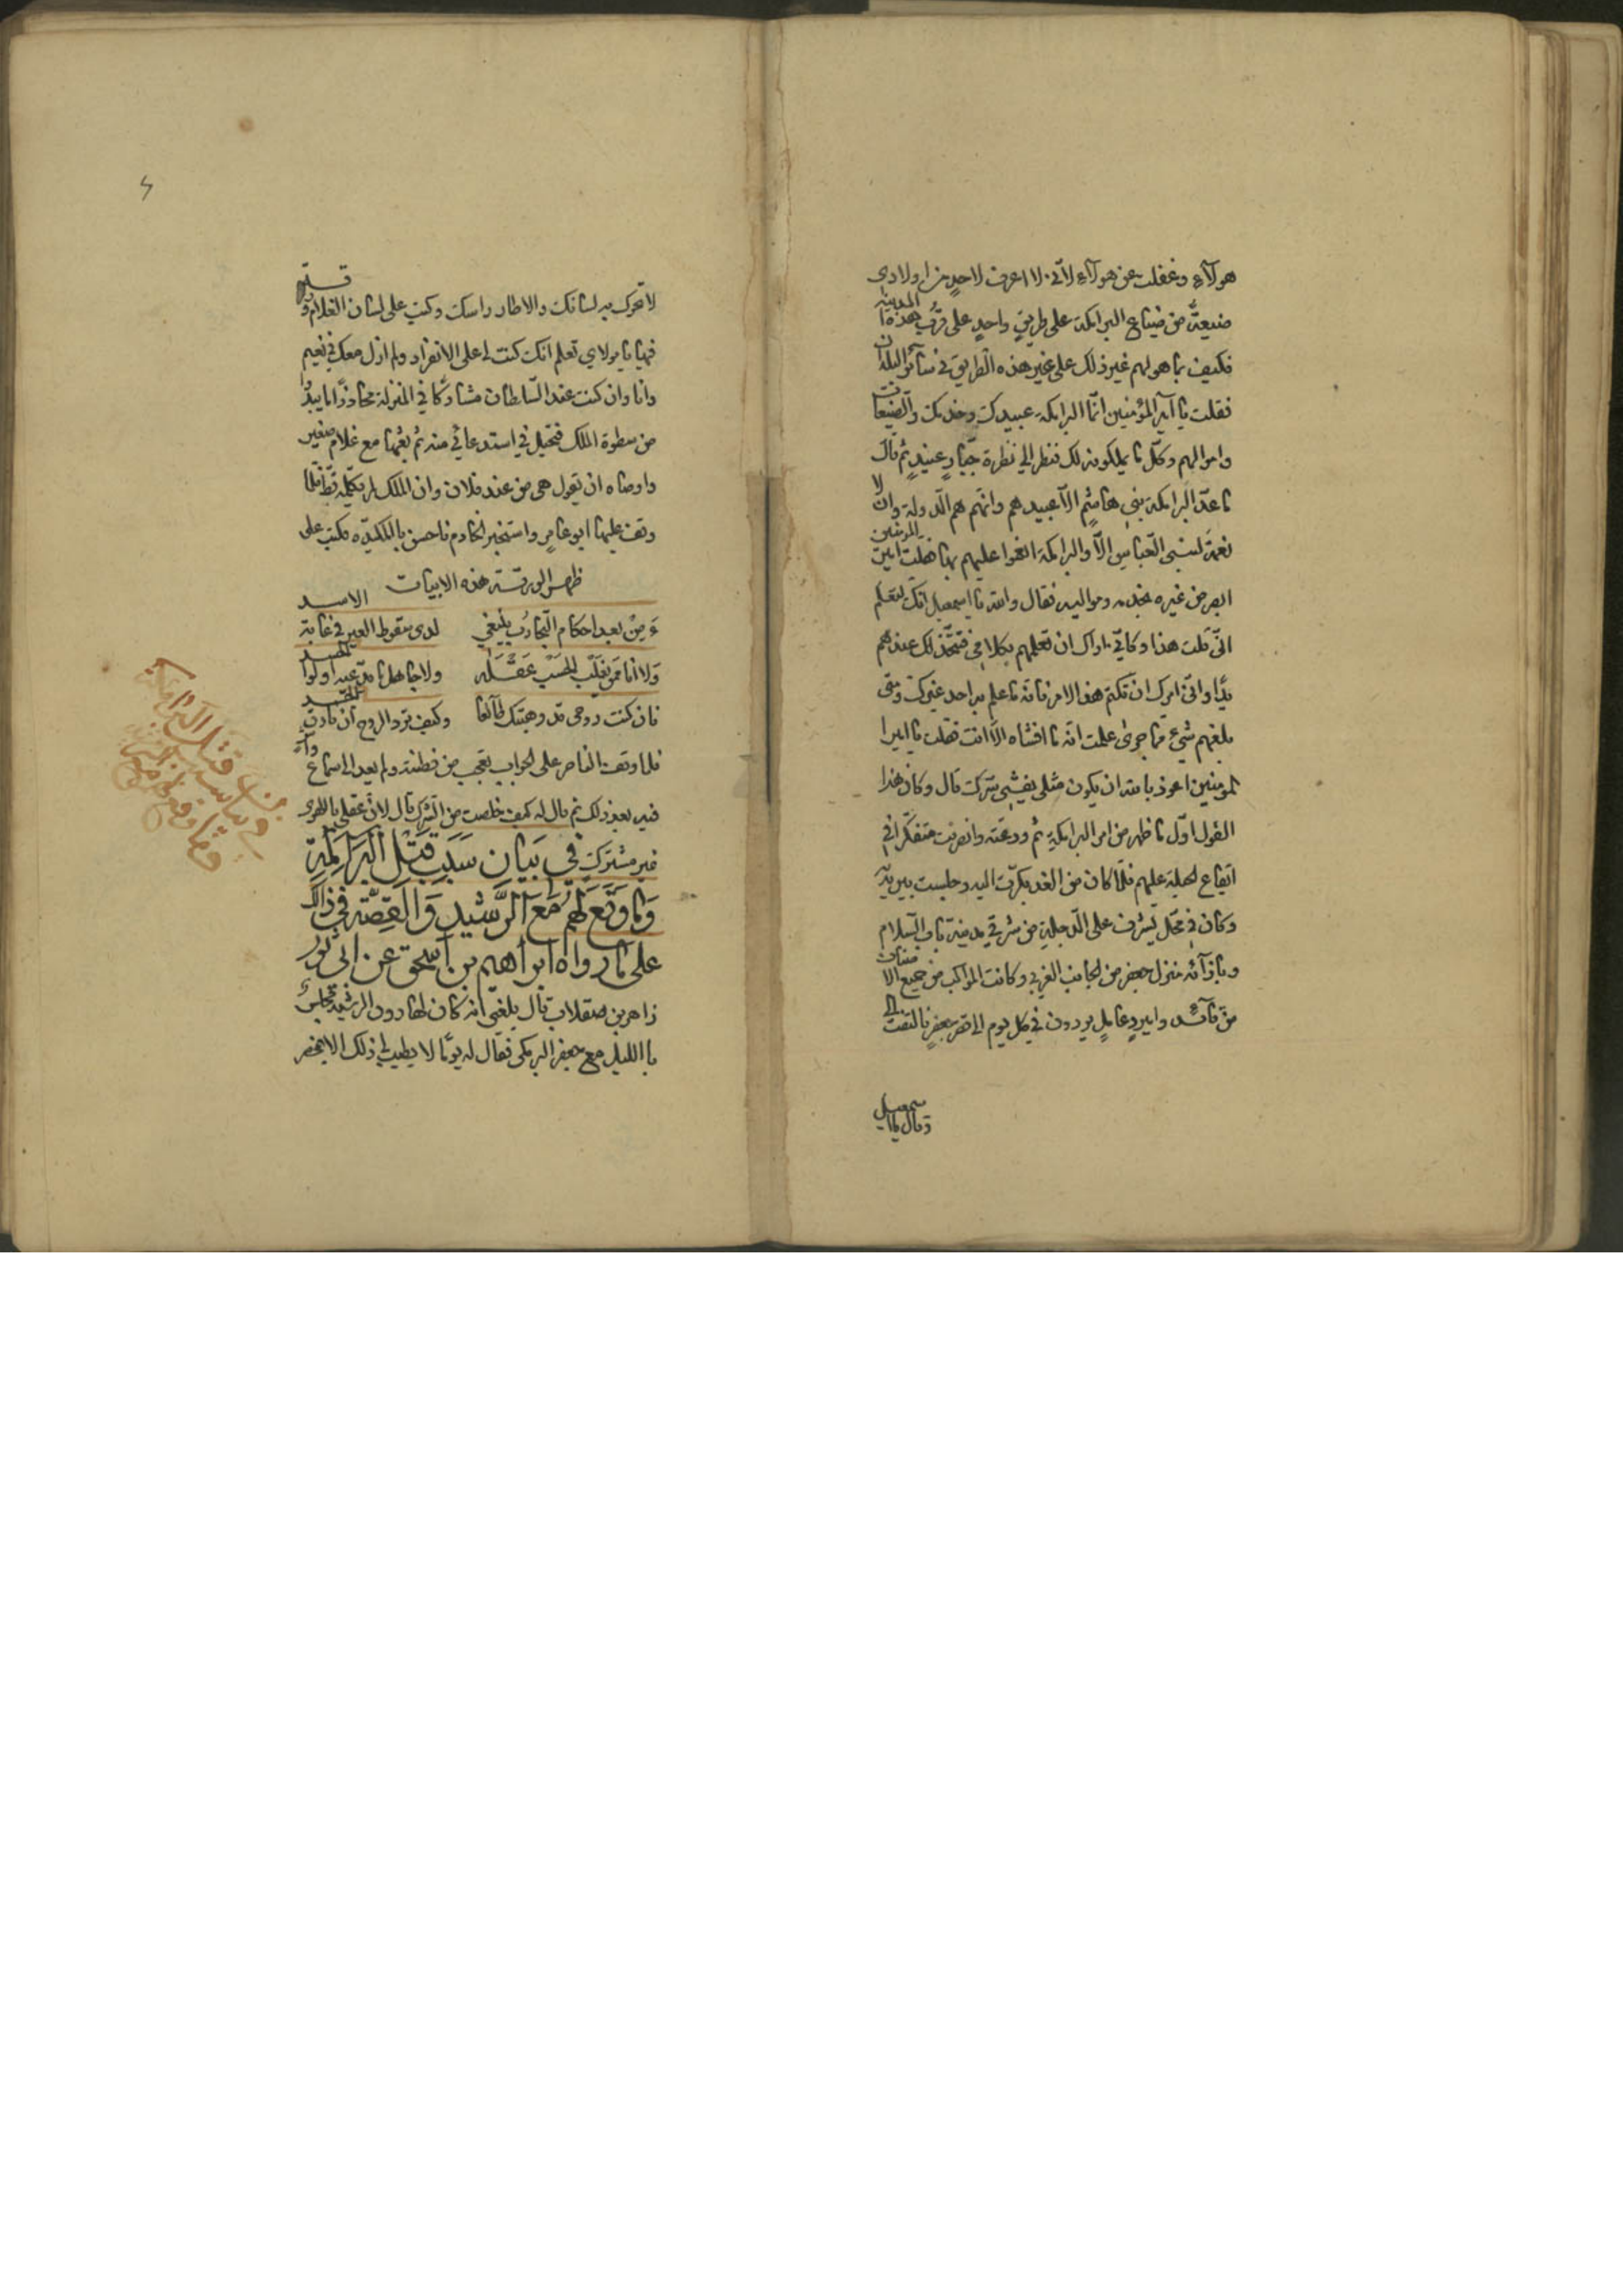 هولآء وغفلت عن هولآء لاني لا اعرف لاحد من اولادي
ضيعةً من ضياع البرامكة على طريقٍ واحدٍ على قرب هذه المدينة
فكيف بما هو لهم غير ذلك على غير هذه الطريق في سآئر البلدان
فقلت يا امير المؤمنين انما البرامكة عبيدك وخدمك والضيعات
واموالهم وكل ما يملكونه لك فنظر الي نظرة جبارٍ عنيدٍ ثم قال
ما عدّ البرامكة بني هاشم الا عبيدهم وانهم هم الدولة وان لا
نعمة لبني العباس الا والبرامكة انعموا عليهم بها فقلت امير المومنين
ابصر من غيره بخدمه ومواليه فقال والله يا اسمعيل انك لتعلم
اني قلت هذا وكاني اراك ان تعلمهم بكلامي فتتخذ لك عندهم
يدًا واني امرك ان تكتم هذا الامر فانه ما علم به احد غيرك ومتى
بلغهم شيء مما جرى علمت انه ما افشاه الا انت فقلت يا امير ا
لمومنين اعوذ بالله ان يكون مثلي يفشي سرك قال وكان هذا
القول اوّل ما ظهر من امر البرامكة ثم ودعته وانصرفت متفكرا في
ايقاع الحيلة عليهم فلما كان من الغد بكرت اليه وجلست بين يديه
وكان في محل يشرف على الدجلة من شرقي مدينة باب السلام
وبازآئه منزل جعفر من الجانب الغربي وكانت المواكب من جميع الاصناف
من قآئد وامير وعامل يردون في كل يوم الى قصر جعفر فالتفت الي
وقال يا اسمعيل
لا تحرك به لسانك والا طار راسك وكتب على لسان الغلام ورقة
فيها يا مولاي تعلم انك كنت لي على الانفراد ولم ازل معك في نعيم
وانا وان كنت عند السلطان مشاركا في المنزلة محاذرًا ما يبدُ
من سطوة الملك فتحيل في استدعائي منه ثم بعثها مع غلام صغير
واوصاه ان يقول هي من عند فلان وان الملك لم يكلمه قط فلما
وقف عليها ابو عامر واستخبر الخادم فاحس بالمكيده فكتب على
ظهر الورقة هذه الابيات
ءَ من بعد احكام التجارب ينبغي لدى سقوط العير في غابة الاسد
ولا انا ممن يغلب الحب عقله ولا جاهل ما يدعيه اولوا الحسد
فان كنت روحي قد وهبتك طآئعا وكيف ترد الروح ان فارقت الجسد
فلما وقف الناصر على الجواب تعجب من فطنته ولم يعد الى سماع واش
فيه بعد ذلك ثم قال له كيف خلصت من الشرك قال لان عقلي بالهوى
غير مشترك في بيان سبب قتل البرامكة
وما وقع لهم مع الرشيد والقصة في ذلك
على ما رواه ابراهيم بن اسحق عن ابي ثور
زاهر بن صقلاب قال بلغني انه كان لهارون الرشيد مجلسٌ
باالليل مع جعفر البرمكي فقال له يومًا لا يطيب لي ذلك الا بمحضر
قتل البرامكة